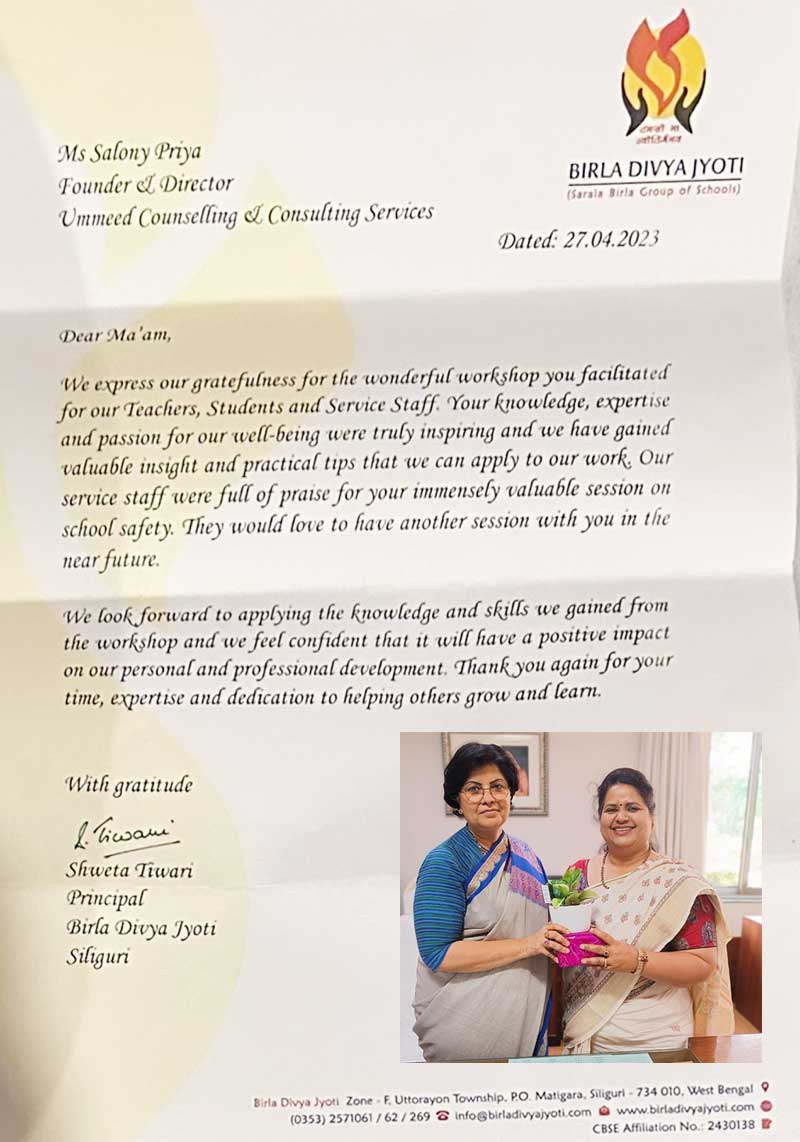 तमसो मा
ज्योतिर्गमय
BIRLA DIVYA JYOTI
(Sarala Birla Group of Schools)
Ms Salony Priya
Founder & Director
Ummeed Counselling & Consulting Services
Dated: 27.04.2023
Dear Ma'am,
We express our gratefulness for the wonderful workshop you facilitated
for our Teachers, Students and Service Staff. Your knowledge, expertise
and passion for our well-being were truly inspiring and we have gained
valuable insight and practical tips that we can apply to our work. Our
service staff were full of praise for your immensely valuable session on
school safety. They would love to have another session with you in the
near future.
We look forward to applying the knowledge and skills we gained from
the workshop and we feel confident that it will have a positive impact
on our personal and professional development. Thank you again for your
time, expertise and dedication to helping others grow and learn.
With gratitude
S. Tiwari
Shweta Tiwari
Principal
Birla Divya Jyoti
Siliguri
Birla Divya Jyoti Zone - F, Uttorayon Township, P.O. Matigara, Siliguri - 734 010, West Bengal
(0353) 2571061 / 62 / 269 info@birladivyajyoti.com www.birladivyajyoti.com
CBSE Affiliation No.: 2430138